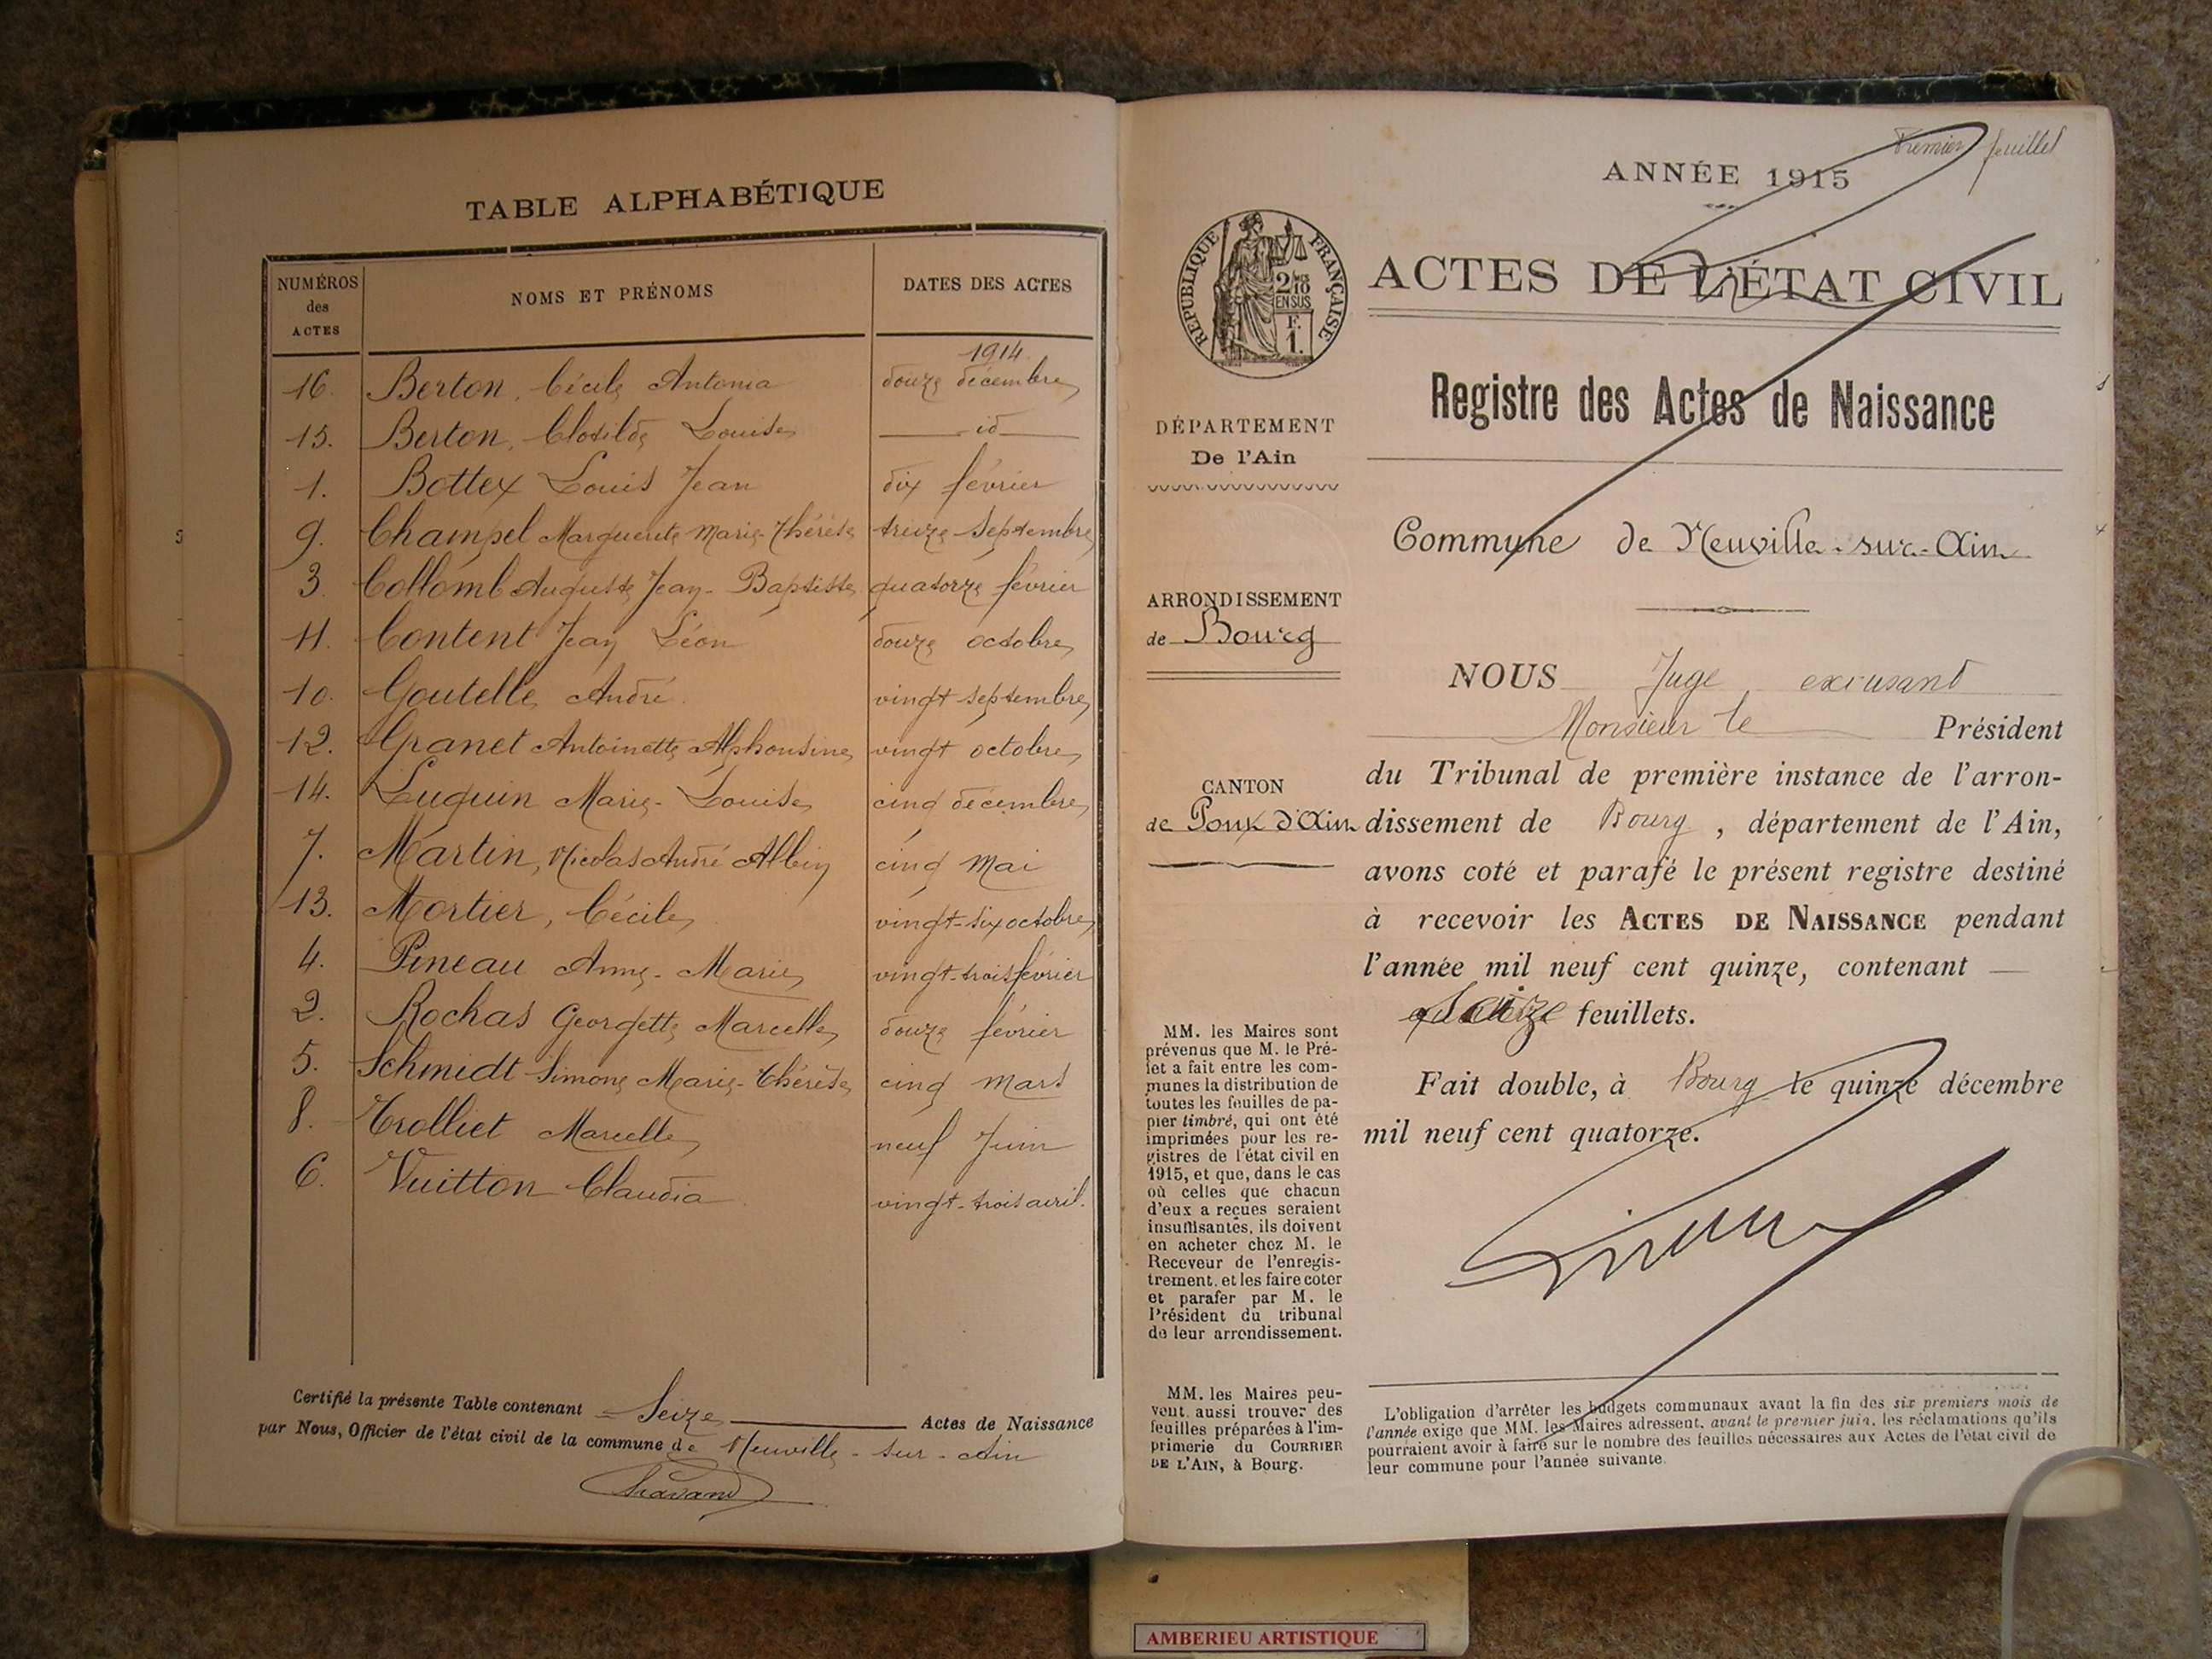 TABLE ALPHABÉTIQUE
NUMÉROS
des
ACTES
NOMS ET PRÉNOMS
DATES DES ACTES
1914
16. Berton, Cécile Antonia douze décembre
15. Berton, Clotilde Louise id
1. Bottex Louis Jean dix février
9. Champel Marguerite Marie-Thérèse treize septembre
3. Collomb Auguste Jean-Baptiste quatorze février
11. Content Jean Léon douze octobre
10. Goutelle André vingt septembre
12. Granet Antoinette Alphonsine vingt octobre
14. Luguin Marie-Louise cinq décembre
7. Martin, Nicolas André Albin cinq mai
13. Mortier, Cécile vingt-six octobre
4. Pineau Anne-Marie vingt-trois février
2. Rochas Georgette Marcelle douze février
5. Schmidt Simone Marie-Thérèse cinq mars
8. Trolliet Marcelle neuf Juin
6. Vuitton Claudia vingt-trois avril.
Certifié la présente Table contenant Seize Actes de Naissance
par Nous, Officier de l'état civil de la commune de Neuville-sur-Ain
Premier feuillet
ANNÉE 1915
RÉPUBLIQUE FRANÇAISE
2/10
EN SUS
F.
1.
ACTES DE L'ÉTAT CIVIL
Registre des Actes de Naissance
DÉPARTEMENT
De l'Ain
Commune de Neuville-sur-Ain
ARRONDISSEMENT
de Bourg
CANTON
de Pont d'Ain
NOUS Juge excusant
Monsieur le Président
du Tribunal de première instance de l'arron-
dissement de Bourg, département de l'Ain,
avons coté et parafé le présent registre destiné
à recevoir les ACTES DE NAISSANCE pendant
l'année mil neuf cent quinze, contenant
feuillets.
Fait double, à Bourg le quinze décembre
mil neuf cent quatorze.
MM. les Maires sont
prévenus que M. le Pré-
fet a fait entre les com-
munes la distribution de
toutes les feuilles de pa-
pier timbré, qui ont été
imprimées pour les re-
gistres de l'état civil en
1915, et que, dans le cas
où celles que chacun
d'eux a reçues seraient
insuffisantes, ils doivent
en acheter chez M. le
Receveur de l'enregis-
trement, et les faire coter
et parafer par M. le
Président du tribunal
de leur arrondissement.
MM. les Maires peu-
vent aussi trouver des
feuilles préparées à l'im-
primerie du COURRIER
DE L'AIN, à Bourg.
L'obligation d'arrêter les budgets communaux avant la fin des six premiers mois de
l'année exige que MM. les Maires adressent, avant le premier juin, les réclamations qu'ils
pourraient avoir à faire sur le nombre des feuilles nécessaires aux Actes de l'état civil de
leur commune pour l'année suivante.
AMBERIEU ARTISTIQUE